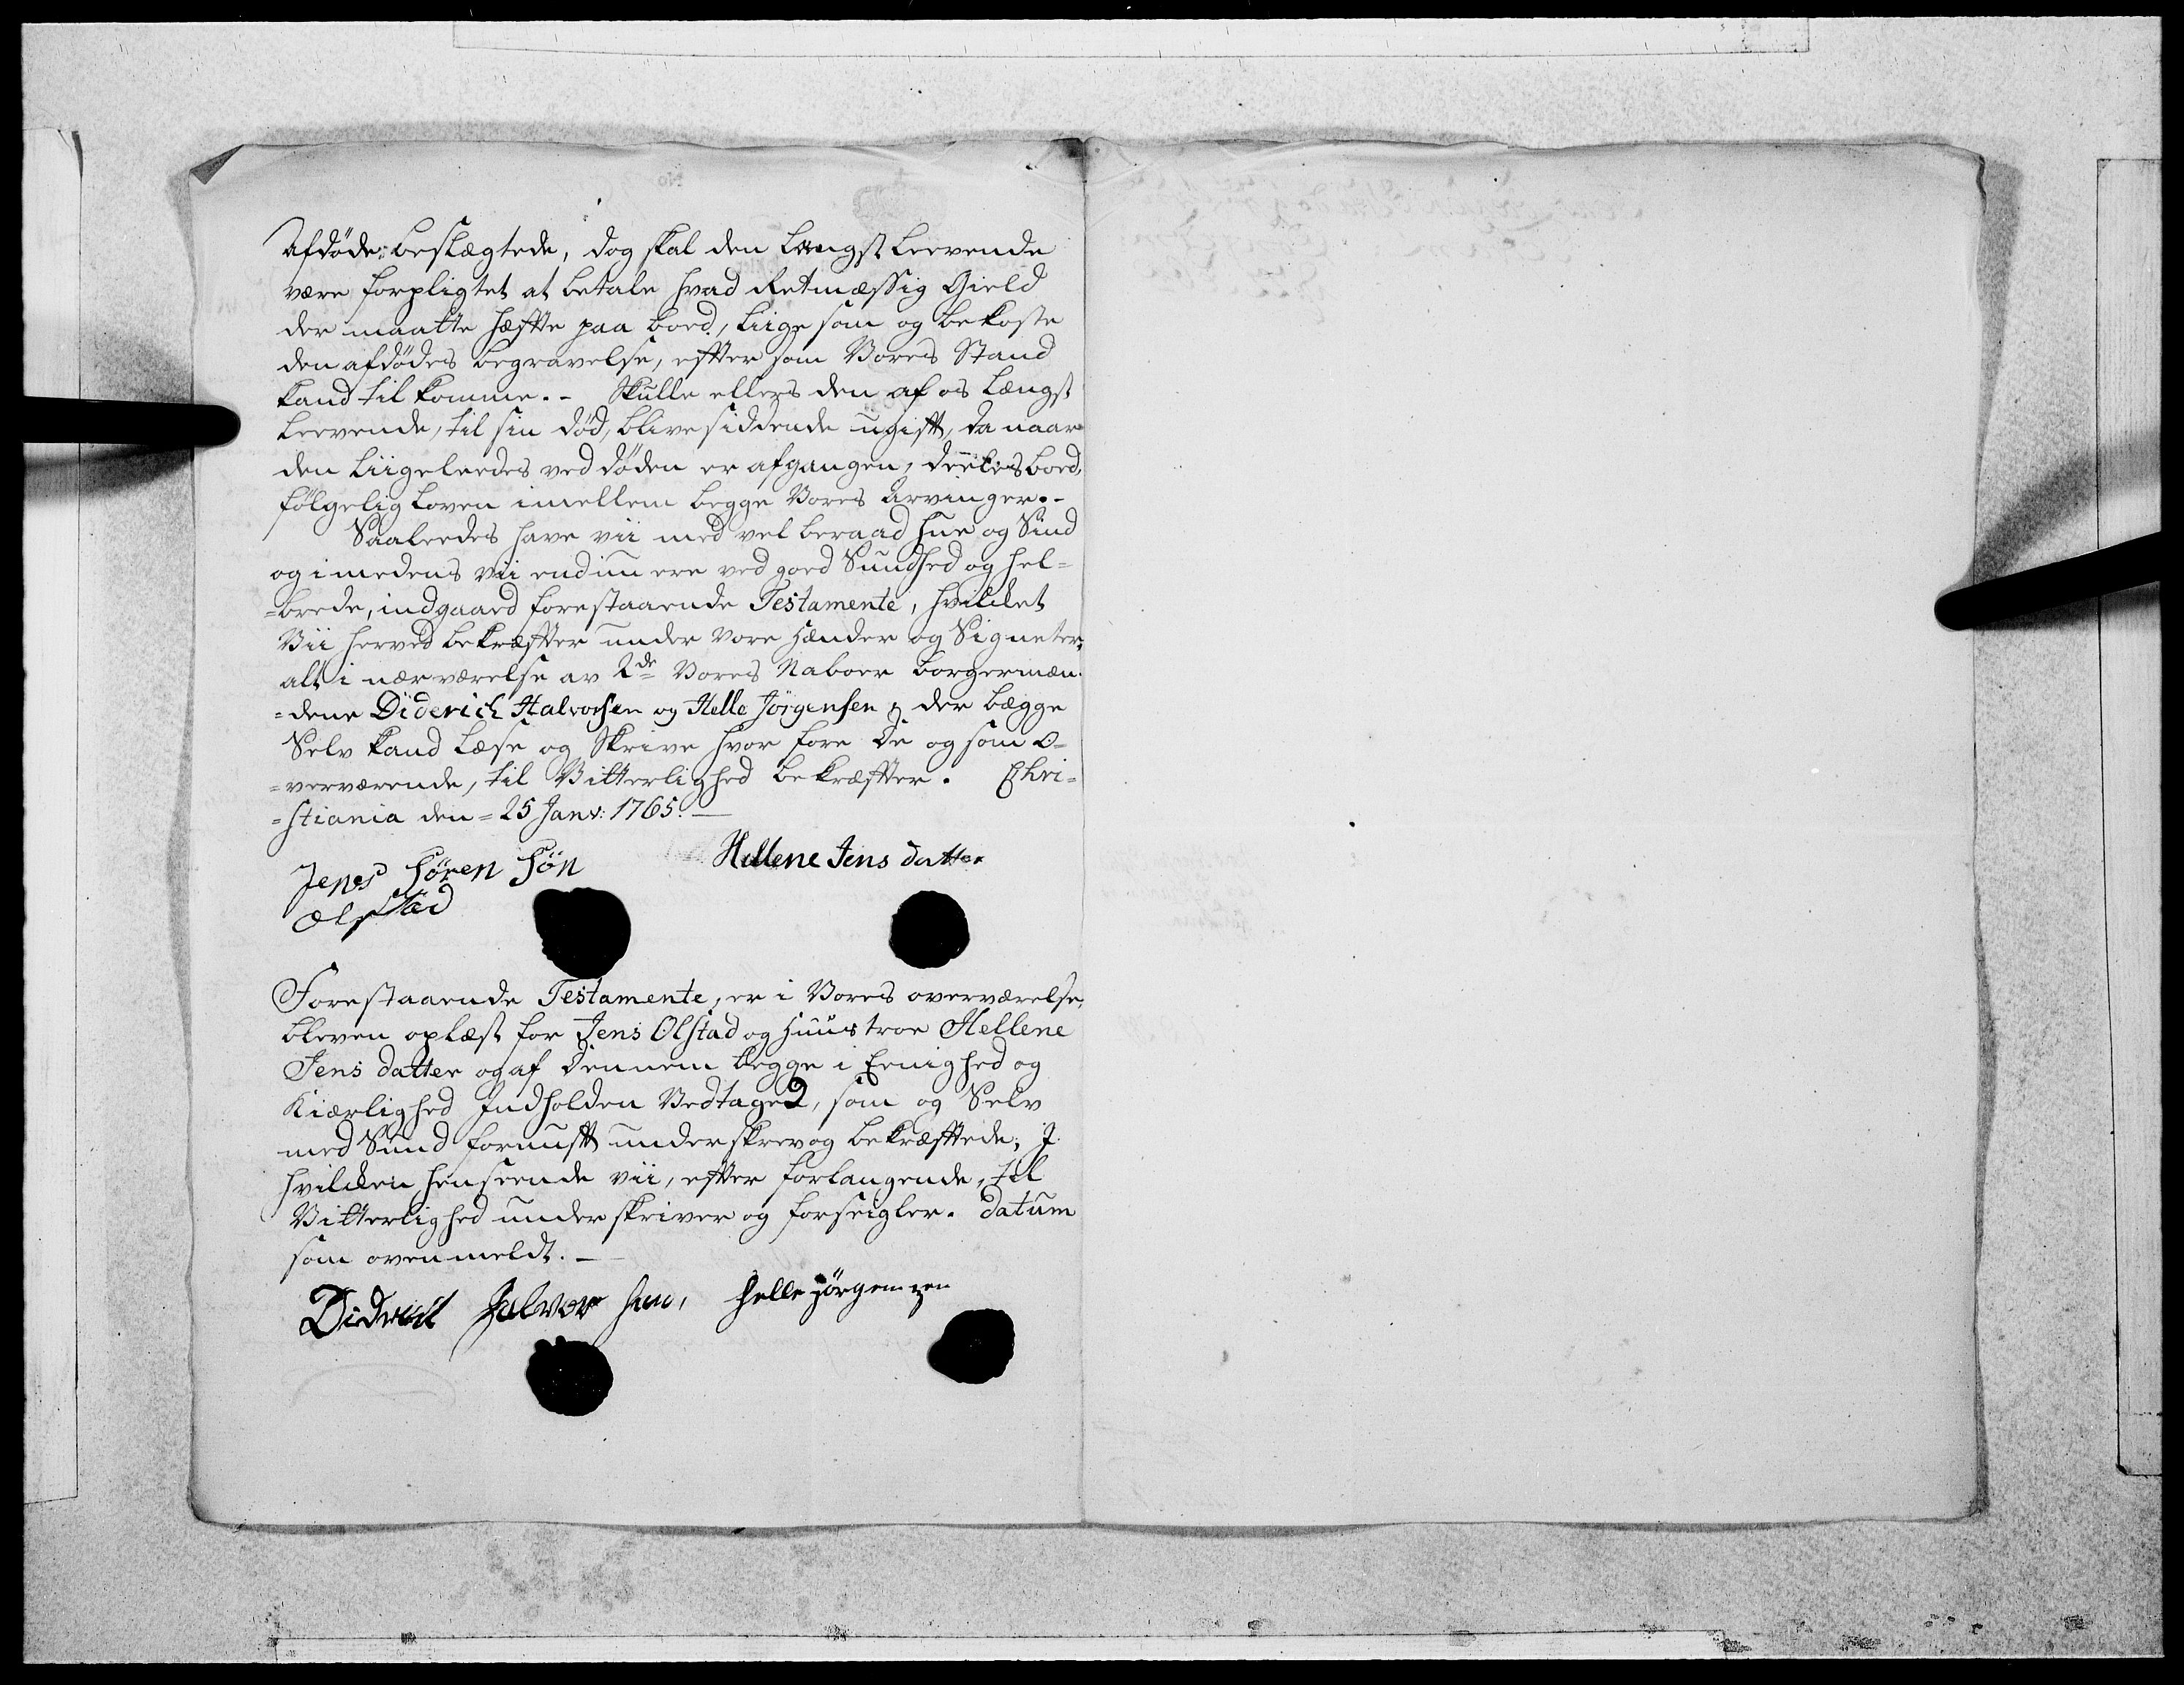 Afdødes beslægtede, dog skal den Længst Leevende
være forpligtet at betale hvad Retmæssig Gield
der maatte hæffte paa boed, liige som og bekoste
den afdødes begravelse, effter som Vores Stand
kand til komme. - Skulle ellers den af os Længst
Leevende, til sin død, blive siddende ugifft, da naar
den liigeleedes ved døden er afgangen, deeles boed,
følgelig Loven imellem begge Vores Arvinger. -
Saaleedes have vii med vel beraad Hue og Sind
og imedens vii endnu ere ved goed Sundhed og hel=
=brede, indgaaed forestaaende Testamente, hvilcket
Vii herved bekræffter under vore Hænder og Signeter,
alt i nærværelse av 2de Vores Naboer borgermæn=
=dene Diderich Halvorsen og Helle Jörgensen, der bægge
Selv kand Læse og Skrive hvor fore De og som o=
=verværende, til Vitterlighed bekræffter. Chri=
=stiania den = 25 Janv: 1765. —
Jenes Sören Sön
Ølstad
Hellene Jens datter
Forestaaende Testamente, er i Vores overværelse,
bleven oplæst for Jens Olstad og Huustroe Hellene
Jens datter og af Dennem begge i Eenighed og
Kiærlighed Indholden Vedtaged, som og Selv
med Sund fornufft underskrev og bekræfftede; I
hvilcken henseende vii, effter forlangende, til
Vitterlighed underskriver og forseigler. datum
som ovenmeldt. —
Didrich Halvor sen, Helle Jörgenzen